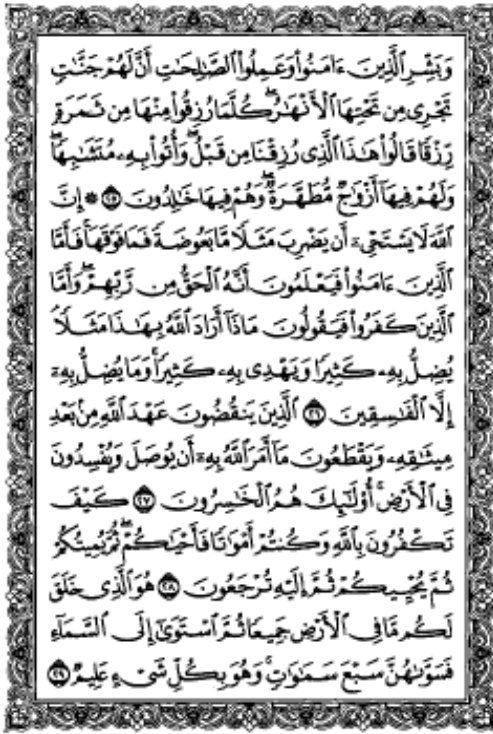 وَبَشِّرِ ٱلَّذِينَ ءَامَنُوا۟ وَعَمِلُوا۟ ٱلصَّٰلِحَٰتِ أَنَّ لَهُمْ جَنَّٰتٍ
تَجْرِى مِن تَحْتِهَا ٱلْأَنْهَٰرُ ۖ كُلَّمَا رُزِقُوا۟ مِنْهَا مِن ثَمَرَةٍ
رِّزْقًا قَالُوا۟ هَٰذَا ٱلَّذِى رُزِقْنَا مِن قَبْلُ ۖ وَأُتُوا۟ بِهِۦ مُتَشَٰبِهًا ۖ
وَلَهُمْ فِيهَآ أَزْوَٰجٌ مُّطَهَّرَةٌ ۖ وَهُمْ فِيهَا خَٰلِدُونَ ۝٢٥ ۞ إِنَّ
ٱللَّهَ لَا يَسْتَحْىِۦٓ أَن يَضْرِبَ مَثَلًا مَّا بَعُوضَةً فَمَا فَوْقَهَا ۚ فَأَمَّا
ٱلَّذِينَ ءَامَنُوا۟ فَيَعْلَمُونَ أَنَّهُ ٱلْحَقُّ مِن رَّبِّهِمْ ۖ وَأَمَّا
ٱلَّذِينَ كَفَرُوا۟ فَيَقُولُونَ مَاذَآ أَرَادَ ٱللَّهُ بِهَٰذَا مَثَلًا ۘ
يُضِلُّ بِهِۦ كَثِيرًا وَيَهْدِى بِهِۦ كَثِيرًا ۚ وَمَا يُضِلُّ بِهِۦٓ
إِلَّا ٱلْفَٰسِقِينَ ۝٢٦ ٱلَّذِينَ يَنقُضُونَ عَهْدَ ٱللَّهِ مِنۢ بَعْدِ
مِيثَٰقِهِۦ وَيَقْطَعُونَ مَآ أَمَرَ ٱللَّهُ بِهِۦٓ أَن يُوصَلَ وَيُفْسِدُونَ
فِى ٱلْأَرْضِ ۚ أُو۟لَٰٓئِكَ هُمُ ٱلْخَٰسِرُونَ ۝٢٧ كَيْفَ
تَكْفُرُونَ بِٱللَّهِ وَكُنتُمْ أَمْوَٰتًا فَأَحْيَٰكُمْ ۖ ثُمَّ يُمِيتُكُمْ
ثُمَّ يُحْيِيكُمْ ثُمَّ إِلَيْهِ تُرْجَعُونَ ۝٢٨ هُوَ ٱلَّذِى خَلَقَ
لَكُم مَّا فِى ٱلْأَرْضِ جَمِيعًا ثُمَّ ٱسْتَوَىٰٓ إِلَى ٱلسَّمَآءِ
فَسَوَّىٰهُنَّ سَبْعَ سَمَٰوَٰتٍ ۚ وَهُوَ بِكُلِّ شَىْءٍ عَلِيمٌ ۝٢٩